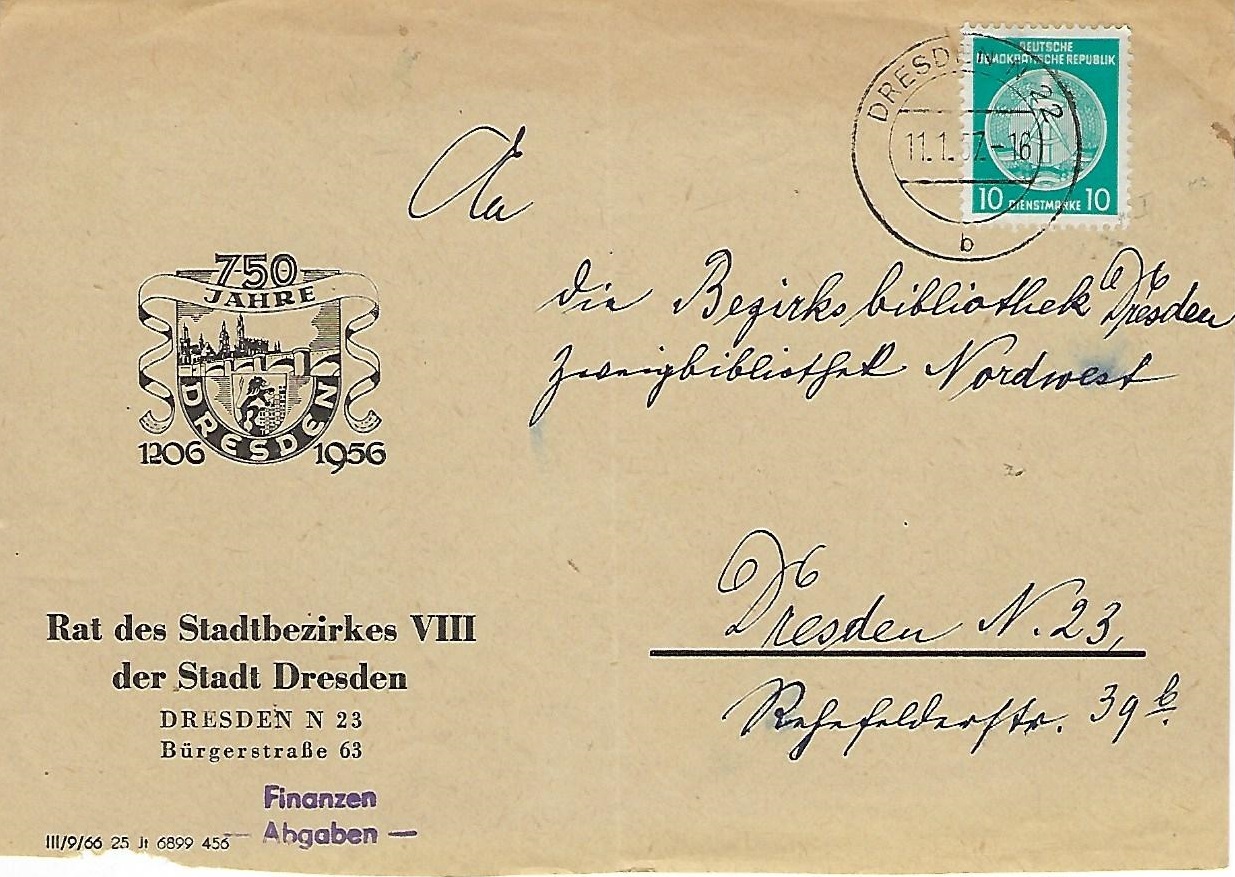 DEUTSCHE
DEMOKRATISCHE REPUBLIK
10 DIENSTMARKE 10
DRESDEN N 22
11.1.57.-16
b
An
die Bezirksbibliothek Dresden
Zweigbibliothek Nordwest
Dresden N.23,
Rehefelderstr. 39 b.
750
JAHRE
DRESDEN
1206 1956
Rat des Stadtbezirkes VIII
der Stadt Dresden
DRESDEN N 23
Bürgerstraße 63
Finanzen
— Abgaben —
III/9/66 25 Jt 6899 456